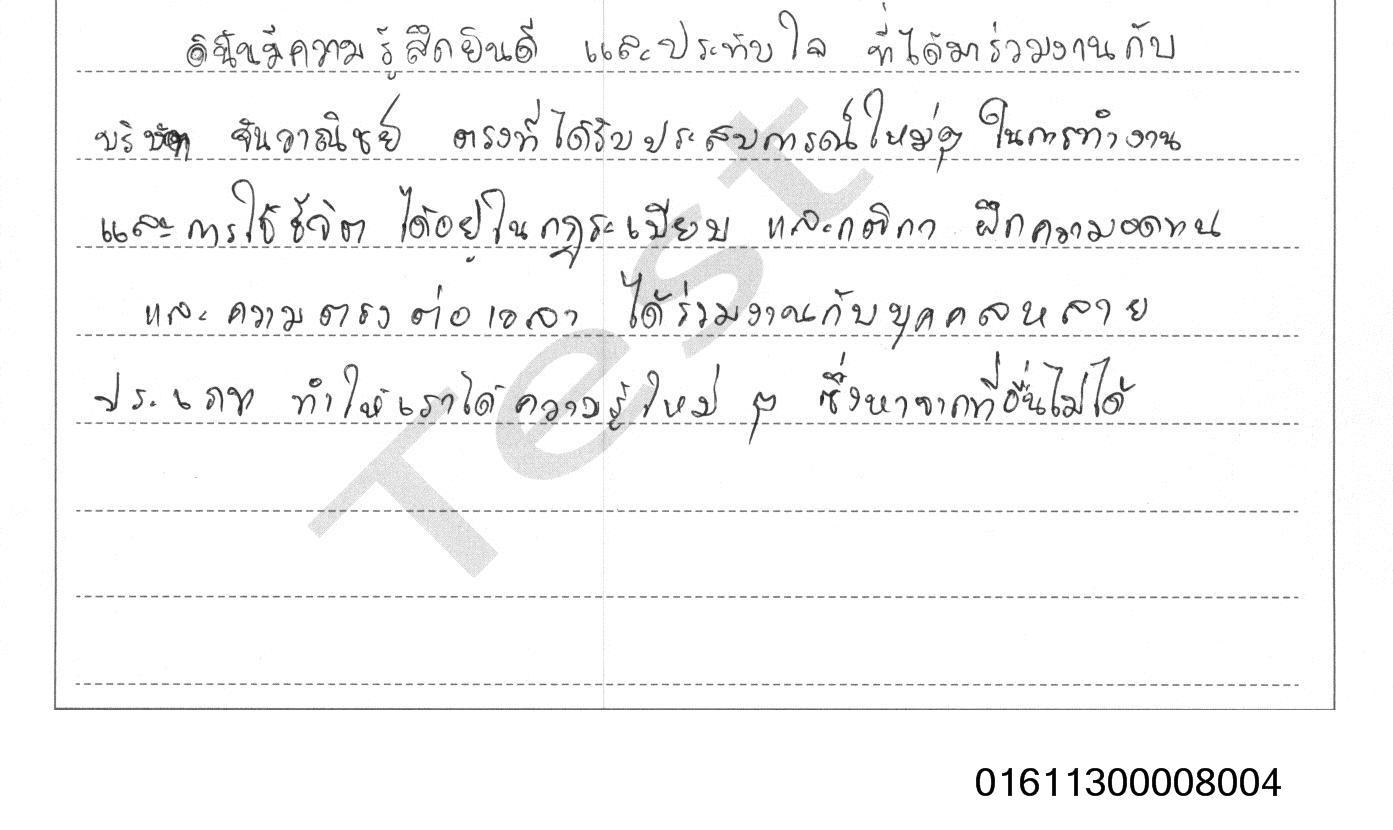 ดิฉันมีความรู้สึกยินดี และประทับใจ ที่ได้มาร่วมงานกับ
บริษัท จันวาณิชย์ ตรงที่ได้รับประสบการณ์ใหม่ๆ ในการทำงาน
และการใช้ชีวิต ได้อยู่ในกฎระเบียบ และกติกา ฝึกความอดทน
และความตรงต่อเวลา ได้ร่วมงานกับบุคคลหลาย
ประเภท ทำให้เราได้ความรู้ใหม่ ๆ ซึ่งหาจากที่อื่นไม่ได้
Test
01611300008004